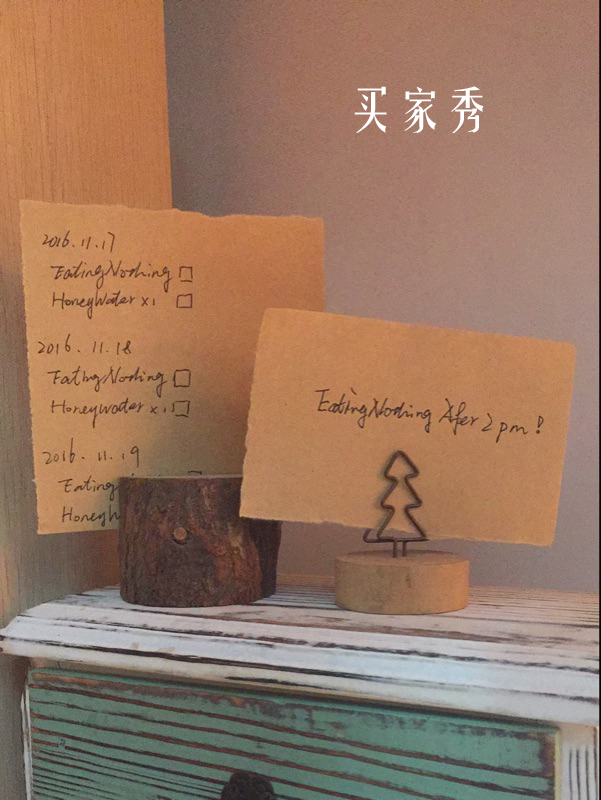 买家秀
2016.11.17
Eating Nothing
Honey Water x1
2016.11.18
Eating Nothing
Honey Water x1
2016.11.19
Eating
Honey
Eating Nothing After 2 pm!